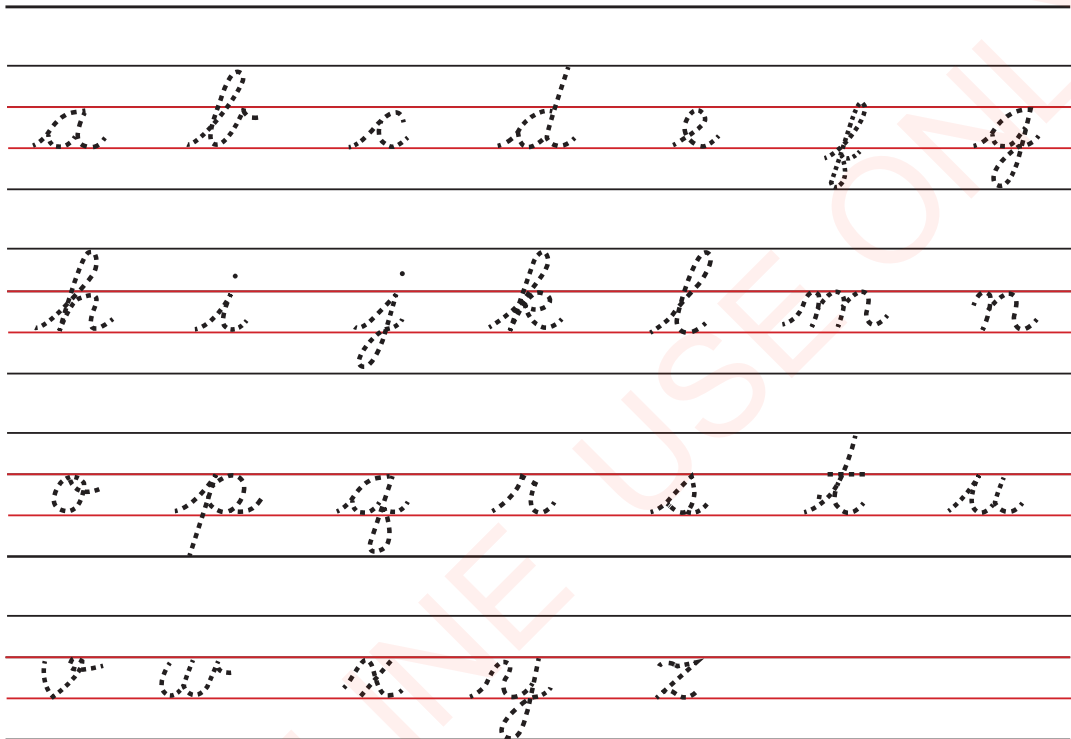 a b c d e f g
h i j k l m n
o p q r s t u
v w x y z
LINE USE ONLY